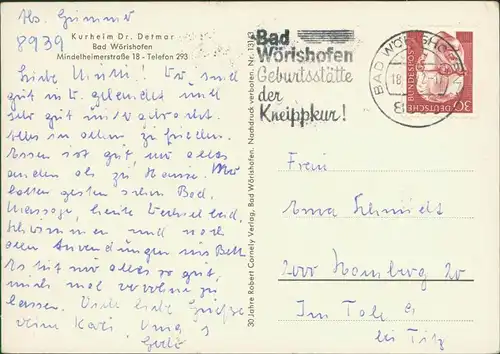 Abs. Grimmer
8939
Kurheim Dr. Detmar
Bad Wörishofen
Mindelheimerstraße 18 - Telefon 293
Liebe Mutti! Wir sind
gut in W. gelandet und
sehr gut untergebracht.
Alles in allem zu frieden.
Essen ist gut, nur alles
anders als zu Hause. Wir
hatten gestern schon Bad,
Massage, heute Wechselbad,
Schwimmen und noch
allen Anwendungen ins Bett
Es tut uns alles so gut,
mich mal verwöhnen zu
lassen. Viele liebe Grüße
deine Kari, und
Götz
30 Jahre Robert Cornely Verlag, Bad Wörishofen. Nachdruck verboten. Nr. 131/3
Bad
Wörishofen
Geburtsstätte
der
Kneippkur!
BAD WÖRISHOFEN
18
DEUTSCHE BUNDESPOST
30
Frau
Erna Schmidt
2000 Hamburg 20
Im Tale 9
bei Titz